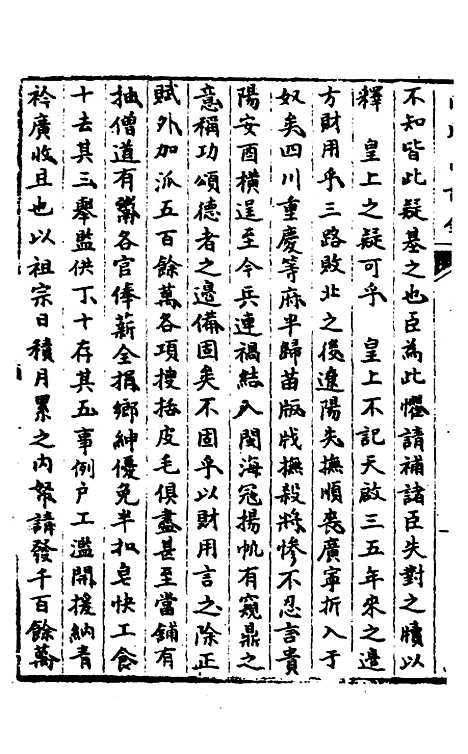 不知皆此疑基之也臣為此懼請補諸臣失對之牘以
釋　皇上之疑可乎　皇上不記天啟三五年來之邊
方財用乎三路敗北之後遼陽失撫順喪廣寧折入于
奴矣四川重慶等府半歸苗版戕撫殺將慘不忍言貴
陽安酋橫逞至今兵連禍結入閩海冦揚帆有窺鼎之
意稱功頌德者之邊備固矣不固乎以財用言之除正
賦外加派五百餘萬各項搜括皮毛俱盡甚至當鋪有
抽僧道有鬻各官俸薪全捐鄉紳優免半扣皂快工食
十去其三舉監供丁十存其五事例户工濫開援納青
衿廣收且也以祖宗日積月累之内帑請發千百餘萬